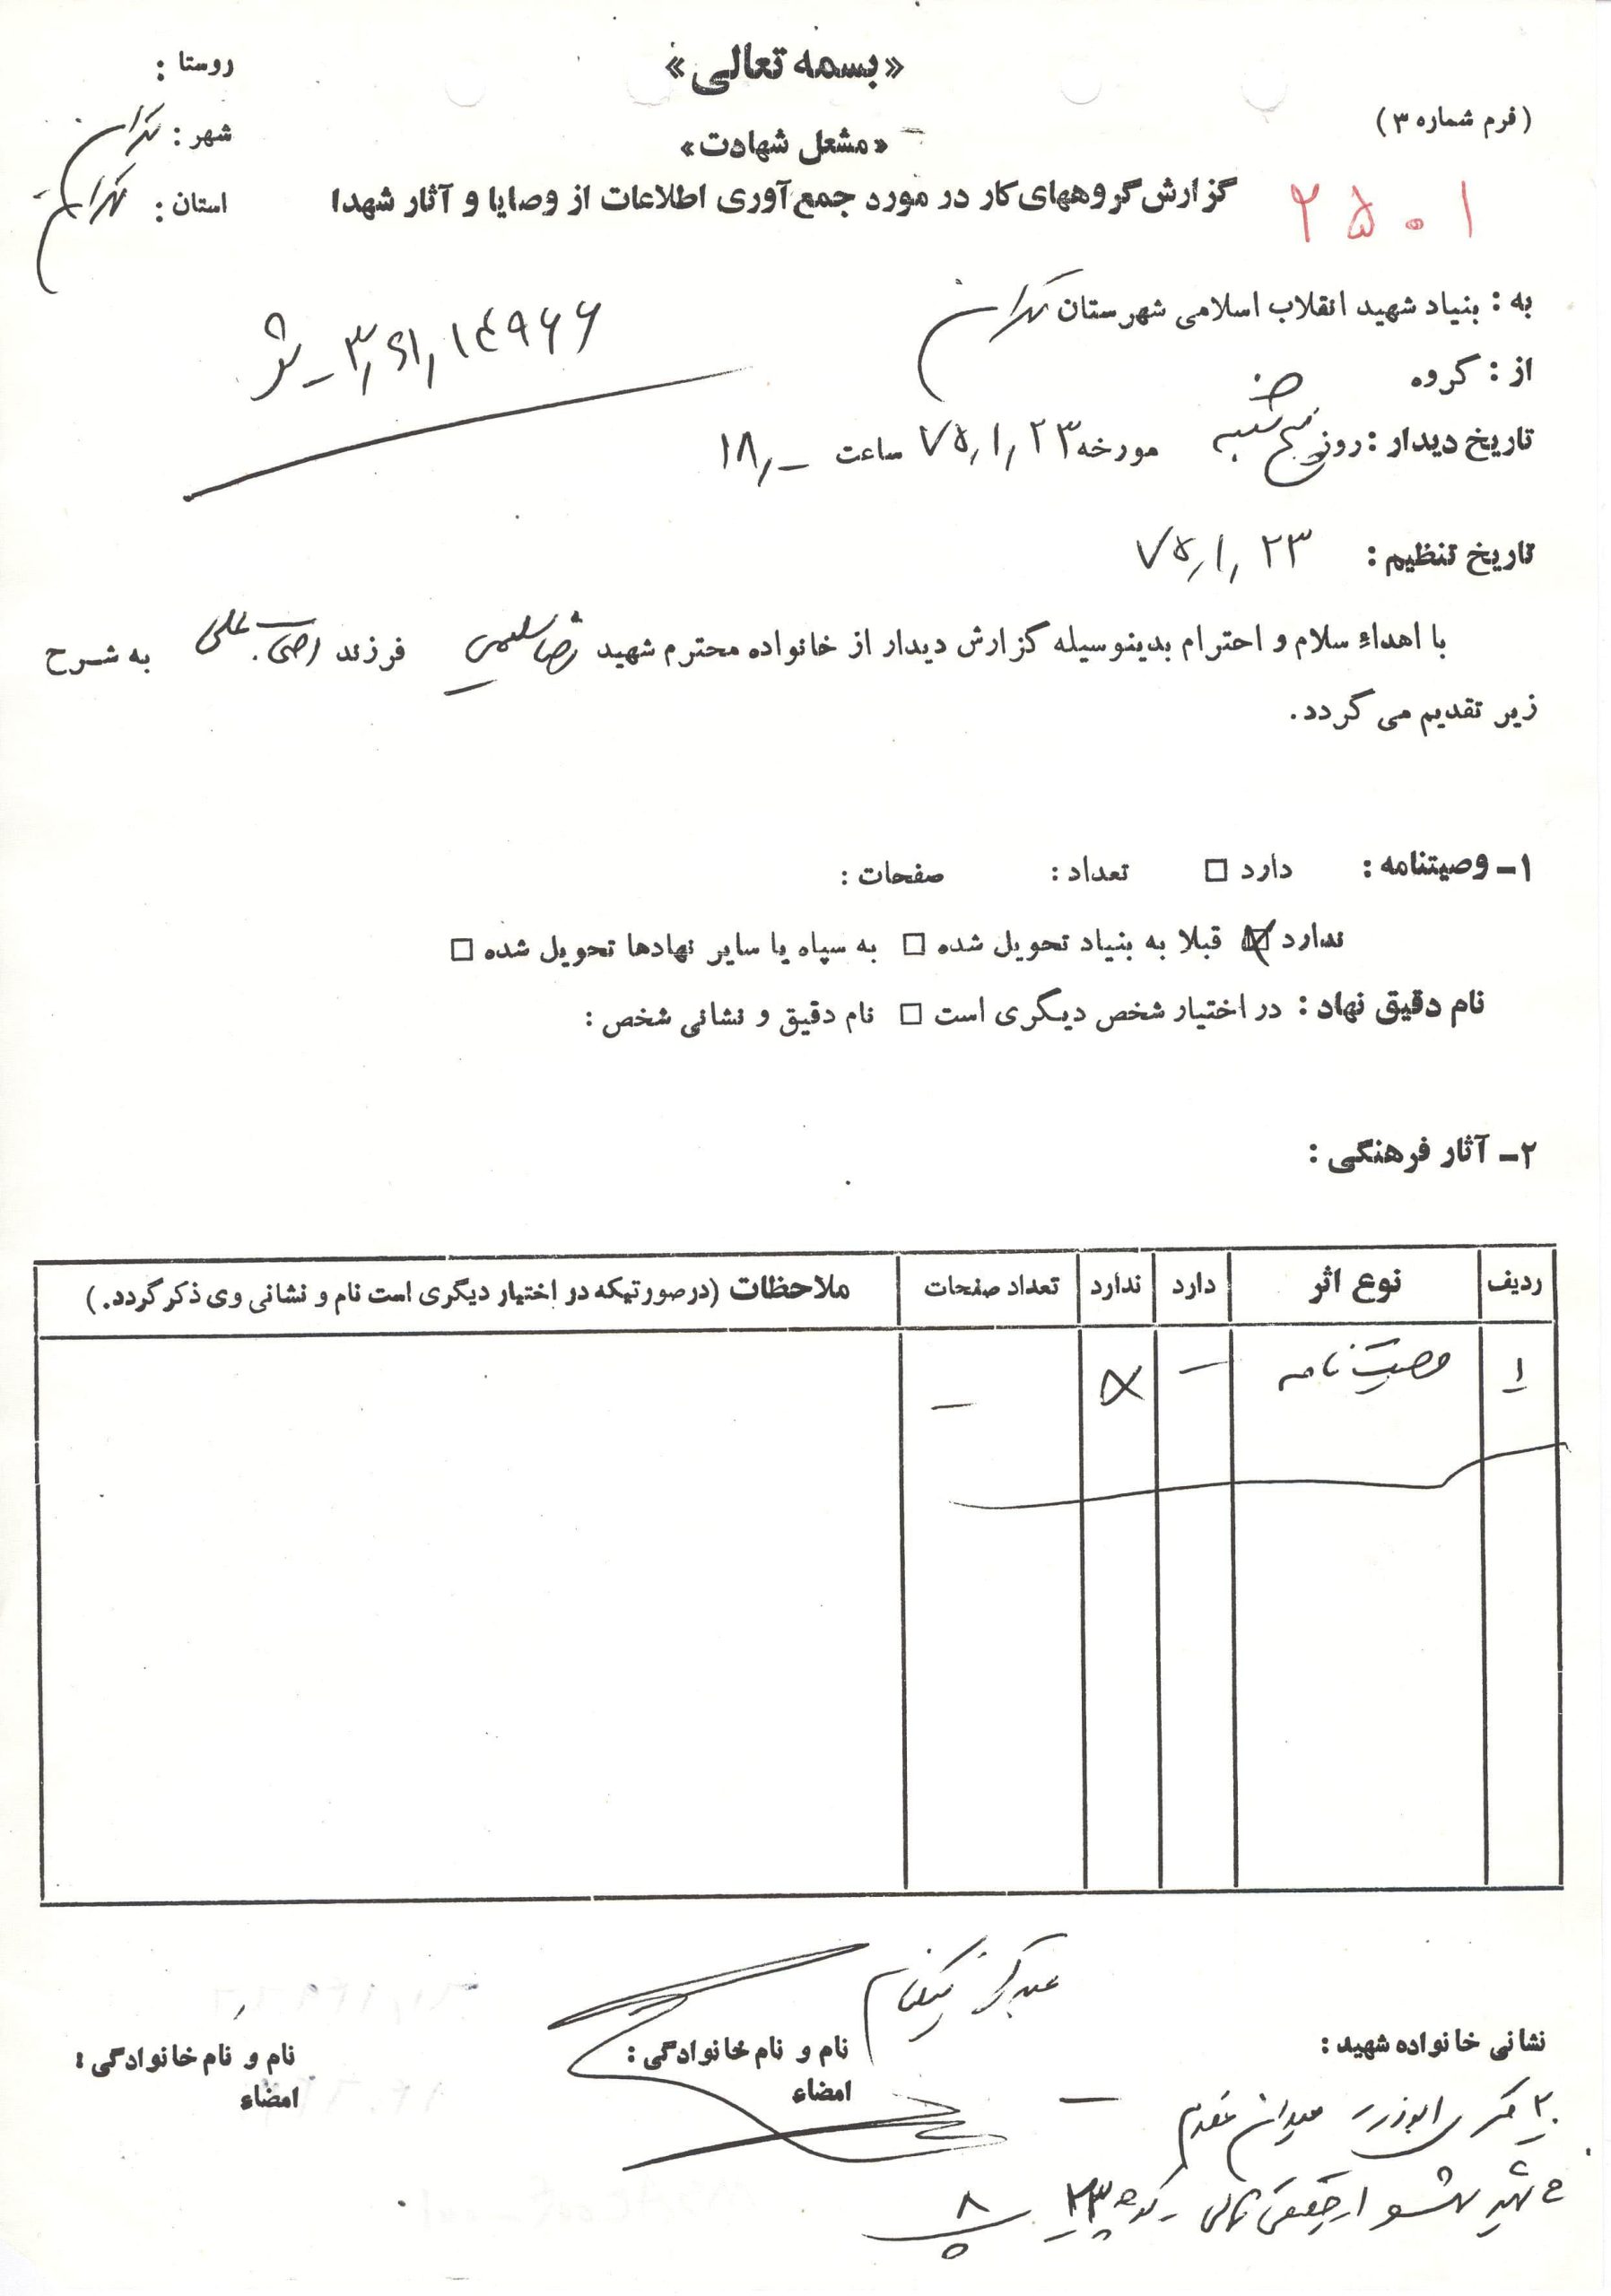 «بسمه تعالی»
روستا :
(فرم شماره ۳)
«مشعل شهادت»
شهر : تهران
گزارش گروههای کار در مورد جمع آوری اطلاعات از وصایا و آثار شهدا
استان : تهران
۲۵۰۱
به : بنیاد شهید انقلاب اسلامی شهرستان تهران
۳٫۶۱٫۱۴۹۶۶
از : گروه
تاریخ دیدار : روز پنج شنبه مورخه ۷۵٫۱٫۲۳ ساعت ۱۸٫ـ
تاریخ تنظیم : ۷۵٫۱٫۲۳
با اهداء سلام و احترام بدینوسیله گزارش دیدار از خانواده محترم شهید فرزند به شرح
زیر تقدیم می گردد.
۱ـ وصیتنامه : دارد □ تعداد : صفحات :
ندارد ☒ قبلا به بنیاد تحویل شده □ به سپاه یا سایر نهادها تحویل شده □
نام دقیق نهاد : در اختیار شخص دیگری است □ نام دقیق و نشانی شخص :
۲ـ آثار فرهنگی :
ردیف نوع اثر دارد ندارد تعداد صفحات ملاحظات (در صورتیکه در اختیار دیگری است نام و نشانی وی ذکر گردد.)
۱ وصیت نامه — × —
نشانی خانواده شهید :
نام و نام خانوادگی :
امضاء
نام و نام خانوادگی :
امضاء
۲۰ متری ابوذر میدان مقدم
۲۳ ۸